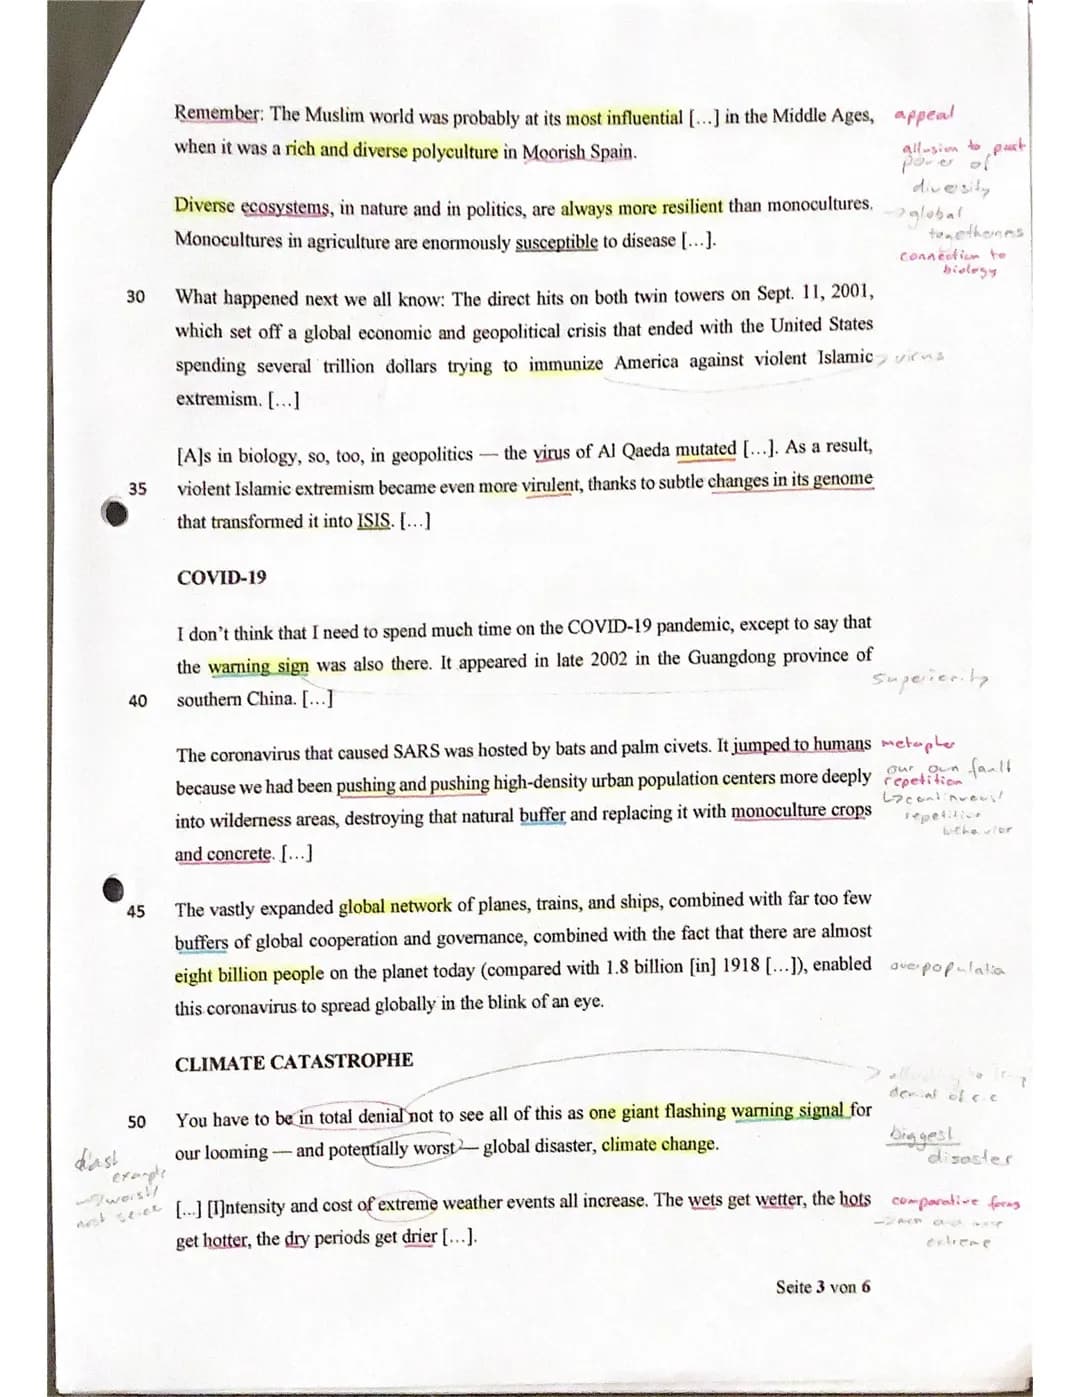 Remember: The Muslim world was probably at its most influential [...] in the Middle Ages, appeal
when it was a rich and diverse polyculture in Moorish Spain. allusion to past
power of
diversity
Diverse ecosystems, in nature and in politics, are always more resilient than monocultures. →global
togetherness
Monocultures in agriculture are enormously susceptible to disease [...]. connection to
biology
30 What happened next we all know: The direct hits on both twin towers on Sept. 11, 2001,
which set off a global economic and geopolitical crisis that ended with the United States
spending several trillion dollars trying to immunize America against violent Islamic → virus
extremism. [...]
[A]s in biology, so, too, in geopolitics — the virus of Al Qaeda mutated [...]. As a result,
35 violent Islamic extremism became even more virulent, thanks to subtle changes in its genome
that transformed it into ISIS. [...]
COVID-19
I don't think that I need to spend much time on the COVID-19 pandemic, except to say that
the warning sign was also there. It appeared in late 2002 in the Guangdong province of
superiority
40 southern China. [...]
The coronavirus that caused SARS was hosted by bats and palm civets. It jumped to humans metapher
our own fault
because we had been pushing and pushing high-density urban population centers more deeply repetition
↳continuous/
into wilderness areas, destroying that natural buffer and replacing it with monoculture crops repetitive
behavior
and concrete. [...]
45 The vastly expanded global network of planes, trains, and ships, combined with far too few
buffers of global cooperation and governance, combined with the fact that there are almost
eight billion people on the planet today (compared with 1.8 billion [in] 1918 [...]), enabled overpopulation
this coronavirus to spread globally in the blink of an eye.
CLIMATE CATASTROPHE
denial of c.c
50 You have to be in total denial not to see all of this as one giant flashing warning signal for
our looming — and potentially worst — global disaster, climate change. biggest
disaster
example
[...] [I]ntensity and cost of extreme weather events all increase. The wets get wetter, the hots comparative forms
get hotter, the dry periods get drier [...]. extreme
Seite 3 von 6